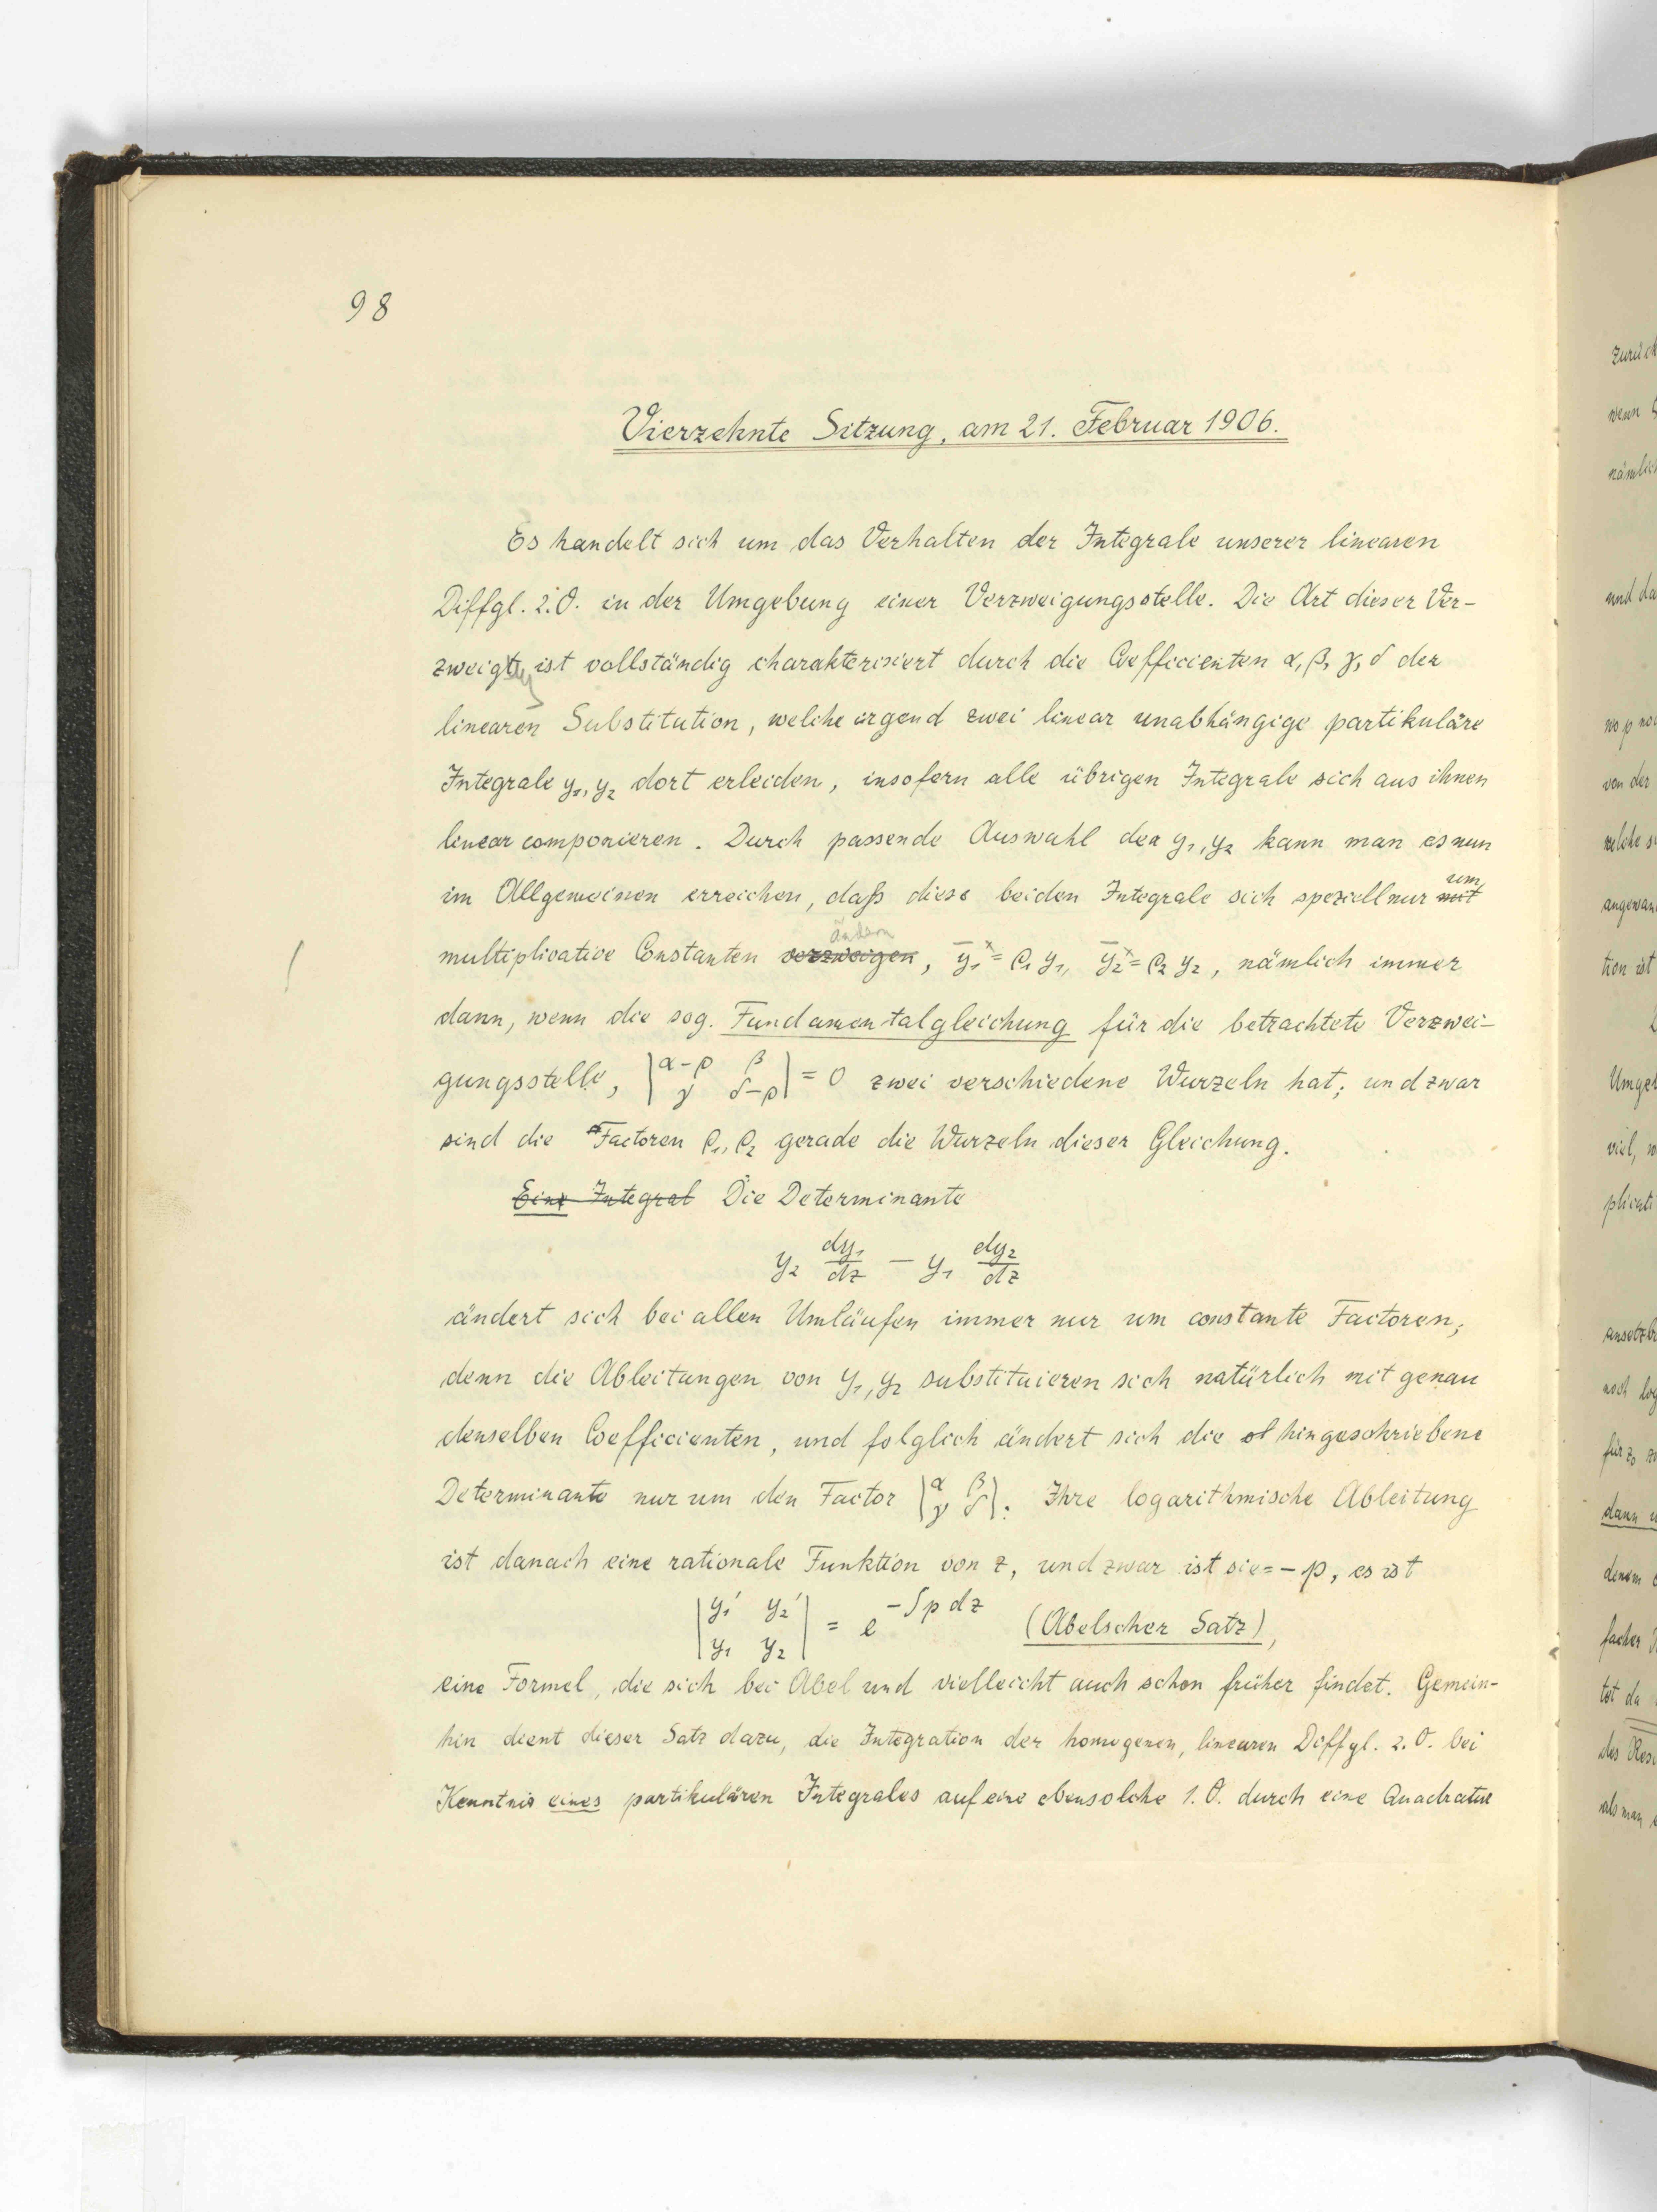 98
Vierzehnte Sitzung, am 21. Februar 1906.
Es handelt sich um das Verhalten der Integrale unserer linearen
Diffgl. 2. O. in der Umgebung einer Verzweigungsstelle. Die Art dieser Ver-
zweigg ist vollständig charakterisiert durch die Coefficienten α, β, γ, δ der
linearen Substitution, welche irgend zwei linear unabhängige partikuläre
Integrale y₁, y₂ dort erleiden, insofern alle übrigen Integrale sich aus ihnen
linear componieren. Durch passende Auswahl der y₁, y₂ kann man es nun
im Allgemeinen erreichen, daß diese beiden Integrale sich speziell nur mit um
multiplicative Constanten verzweigen ändern, ȳ₁ˣ = ρ₁ y₁, ȳ₂ˣ = ρ₂ y₂, nämlich immer
dann, wenn die sog. Fundamentalgleichung für die betrachtete Verzwei-
gungsstelle, |α-ρ β γ δ-ρ| = 0 zwei verschiedene Wurzeln hat; und zwar
sind die Factoren ρ₁, ρ₂ gerade die Wurzeln dieser Gleichung.
Eine Integral Die Determinante
y₂ dy₁/dz − y₁ dy₂/dz
ändert sich bei allen Umläufen immer nur um constante Factoren;
denn die Ableitungen von y₁, y₂ substituieren sich natürlich mit genau
denselben Coefficienten, und folglich ändert sich die hingeschriebene
Determinante nur um den Factor |α β γ δ|. Ihre logarithmische Ableitung
ist danach eine rationale Funktion von z, und zwar ist sie = − p, es ist
|y₁' y₂' y₁ y₂| = e^(−∫p dz) (Abelscher Satz),
eine Formel, die sich bei Abel und vielleicht auch schon früher findet. Gemein-
hin dient dieser Satz dazu, die Integration der homogenen, linearen Diffgl. 2. O. bei
Kenntnis eines partikulären Integrales auf eine ebensolche 1. O. durch eine Quadratur